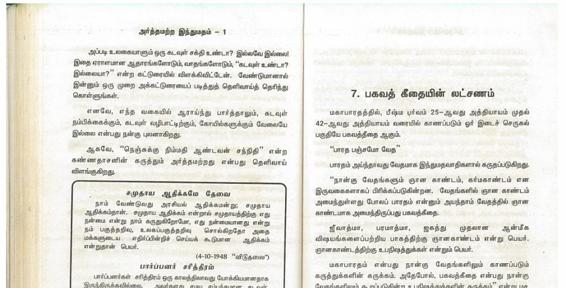 அர்த்தமற்ற இந்துமதம் - 1
அப்படி உலகையாளும் ஒரு கடவுள் சக்தி உண்டா? இல்லவே இல்லை!
இதை ஏராளமான ஆதாரங்களோடும், வாதங்களோடும், "கடவுள் உண்டா?
இல்லையா?" என்ற கட்டுரையில் விளக்கிவிட்டேன். வேண்டுமானால்
இன்னும் ஒரு முறை அக்கட்டுரையைப் படித்துத் தெளிவாய்த் தெரிந்து
கொள்ளுங்கள்.
எனவே, எந்த வகையில் ஆராய்ந்து பார்த்தாலும், கடவுள்
நம்பிக்கைக்கும், கடவுள் வழிபாட்டிற்கும், கோயில்களுக்கும் வேலையே
இல்லை என்பது நன்கு புலனாகிறது.
ஆகவே, "நெஞ்சுக்கு நிம்மதி ஆண்டவன் சந்நிதி" என்ற
கண்ணதாசனின் கருத்தும் அர்த்தமற்றது என்பது தெளிவாய்
விளங்குகிறது.
சமுதாய ஆதிக்கமே தேவை
நாம் வேண்டுவது அரசியல் ஆதிக்கமன்று; சமுதாய
ஆதிக்கம்தான். சமுதாய ஆதிக்கம் என்றால் சமுதாயத்திற்கு எது
நன்மை என்று நாம் கருதுகிறோமோ, எது நன்மையானது என்று
நம் பகுத்தறிவு, உலகப்பகுத்தறிவு சொல்கிறதோ அதை
மக்களுடைய எதிர்ப்பின்றிச் செய்யக் கூடுமான ஆதிக்கம்
என்றுதான் பெயர்.
(4-10-1948 "விடுதலை")
பார்ப்பனர் சரித்திரம்
பார்ப்பனர்கள் சரித்திரம் ஒரு காலத்திலாவது யோக்கியமானதாக
7. பகவத் கீதையின் லட்சணம்
மகாபாரதத்தில், பீஷ்ம பர்வம் 25-ஆவது அத்தியாயம் முதல்
42-ஆவது அத்தியாயம் வரையில் காணப்படும் ஓர் இடைச் செருகல்
பகுதியே பகவத்கீதை ஆகும்.
"பாரத பஞ்சமோ வேத"
பாரதம் அய்ந்தாவது வேதமாக இந்துமதவாதிகளால் கருதப்படுகிறது.
"நான்கு வேதங்களும் ஞான காண்டம், கர்மகாண்டம் என
இருவகைகளாகப் பிரிக்கப்படுகின்றன. வேதங்களில் ஞான காண்டம்
அமைந்துள்ளது போலப் பாரதம் என்னும் அய்ந்தாம் வேதத்தில் ஞான
காண்டமாக அமைந்திருப்பது பகவத்கீதை.
ஜீவாத்மா, பரமாத்மா, ஜகத்து முதலான ஆன்மீக
விஷயங்களைப்பற்றிய பாகத்திற்கு ஞானகாண்டம் என்று பெயர்.
ஞானகாண்டத்திற்கு உபநிஷத்துக்கள் என்றும் பெயர்.
மகாபாரதம் என்பது நான்கு வேதங்களிலும் காணப்படும்
கருத்துக்களின் சுருக்கம். அதேபோல், பகவத்கீதை என்பது நான்கு